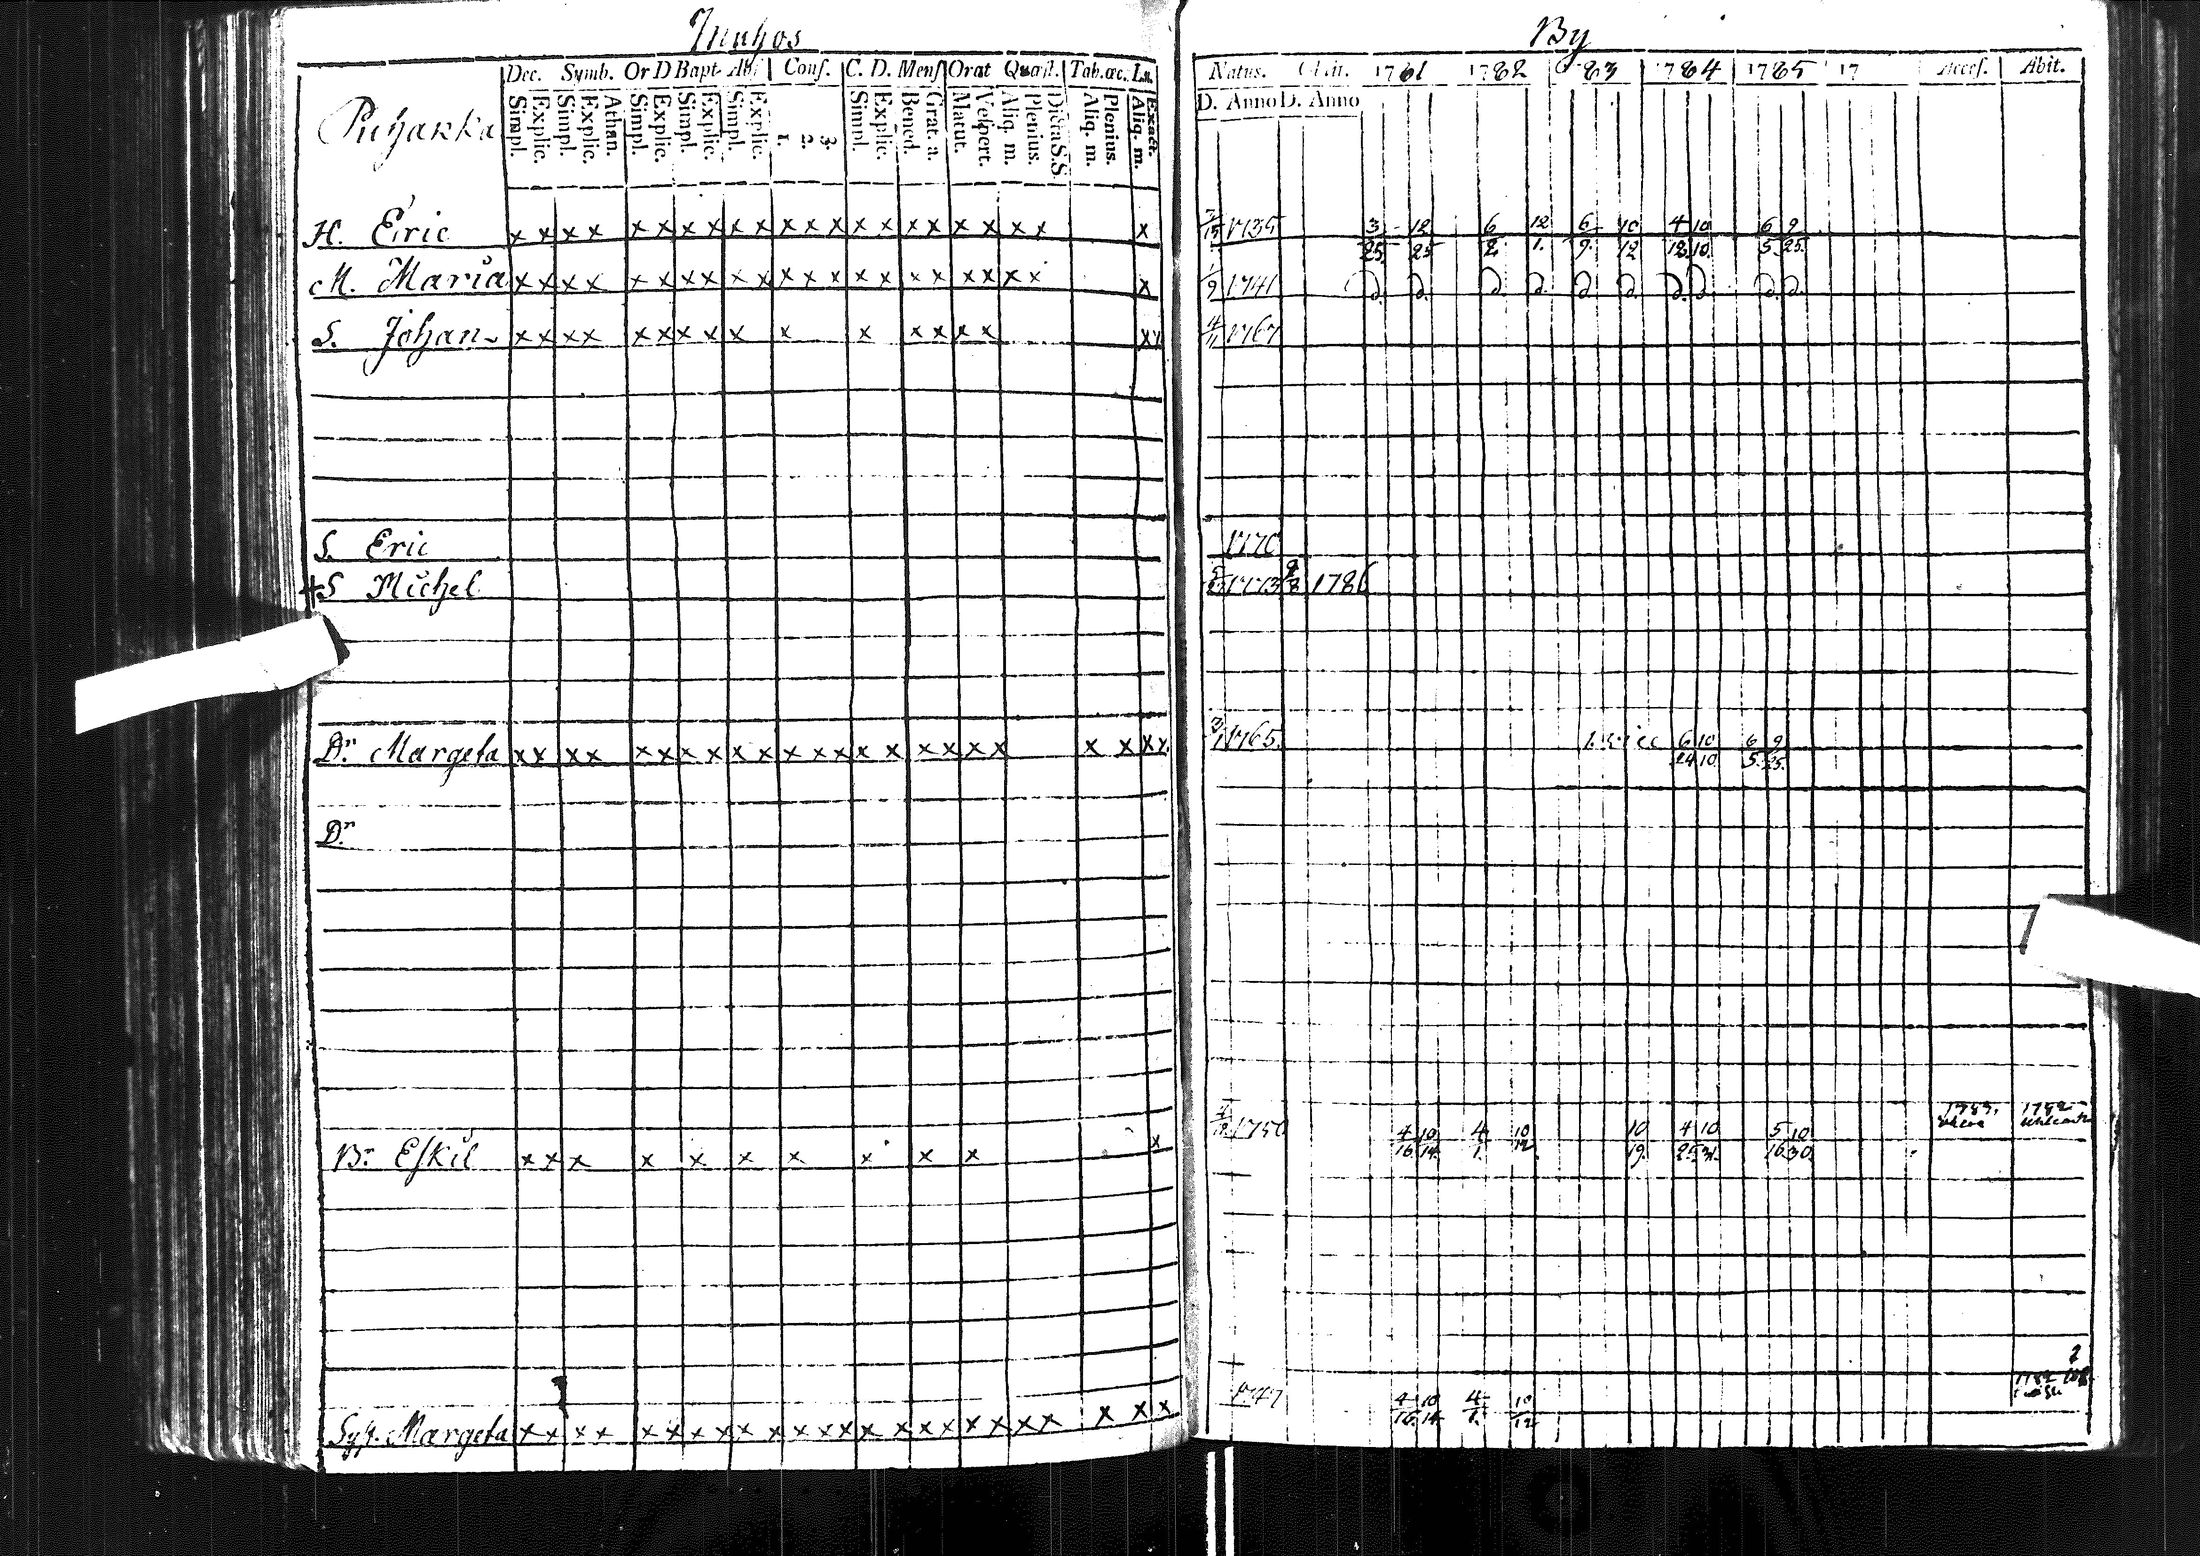 Muhos By
Dec. Symb. Or D Bapt. Abs. Conf. C. D. Mens Orat Quæst. Tab. œc. Natus. Obiit. 1781 1782 83 1784 1785 17 Acces. Abit.
Simpl. Explic. Simpl. Explic. Athan. Simpl. Explic. Simpl. Explic. Simpl. Explic. 1. 2. 3. Simpl. Explic. Bened. Grat. a. Matut. Vespert. Aliq. m. Plenius. Dicta S.S. Aliq. m. Plenius. Aliq. m. Exact. D. Anno D. Anno
Puhakka
H. Eric x x x x x x x x x x x x x x x x x x x x x x 1735 3/25 12/25 6/2. 12/1. 6/9. 10/12 4/12 10/10. 6/5 9/25.
M. Maria x x x x x x x x x x x x x x x x x x x x x x 1/9 1741 D. D. D. D. D. D. D. D. D. D.
S. Johan x x x x x x x x x x x x x x x x x 4/11 1767
S. Eric 1770
+ S Michel 1773 1786
Dr. Margeta x x x x x x x x x x x x x x x x x x x x x x x 1765. 6/24 10/10 6/5. 9/25.
Dr.
Br. Eskil x x x x x x x x x x x x 1750 4/16 10/14. 4/1. 10/12. 10/19. 4/25 10/31. 5/16 10/30. 1783. 1782
Syst. Margeta x x x x x x x x x x x x x x x x x x x x x x x x 1747 4/16 10/14 4/1. 10/12 1782